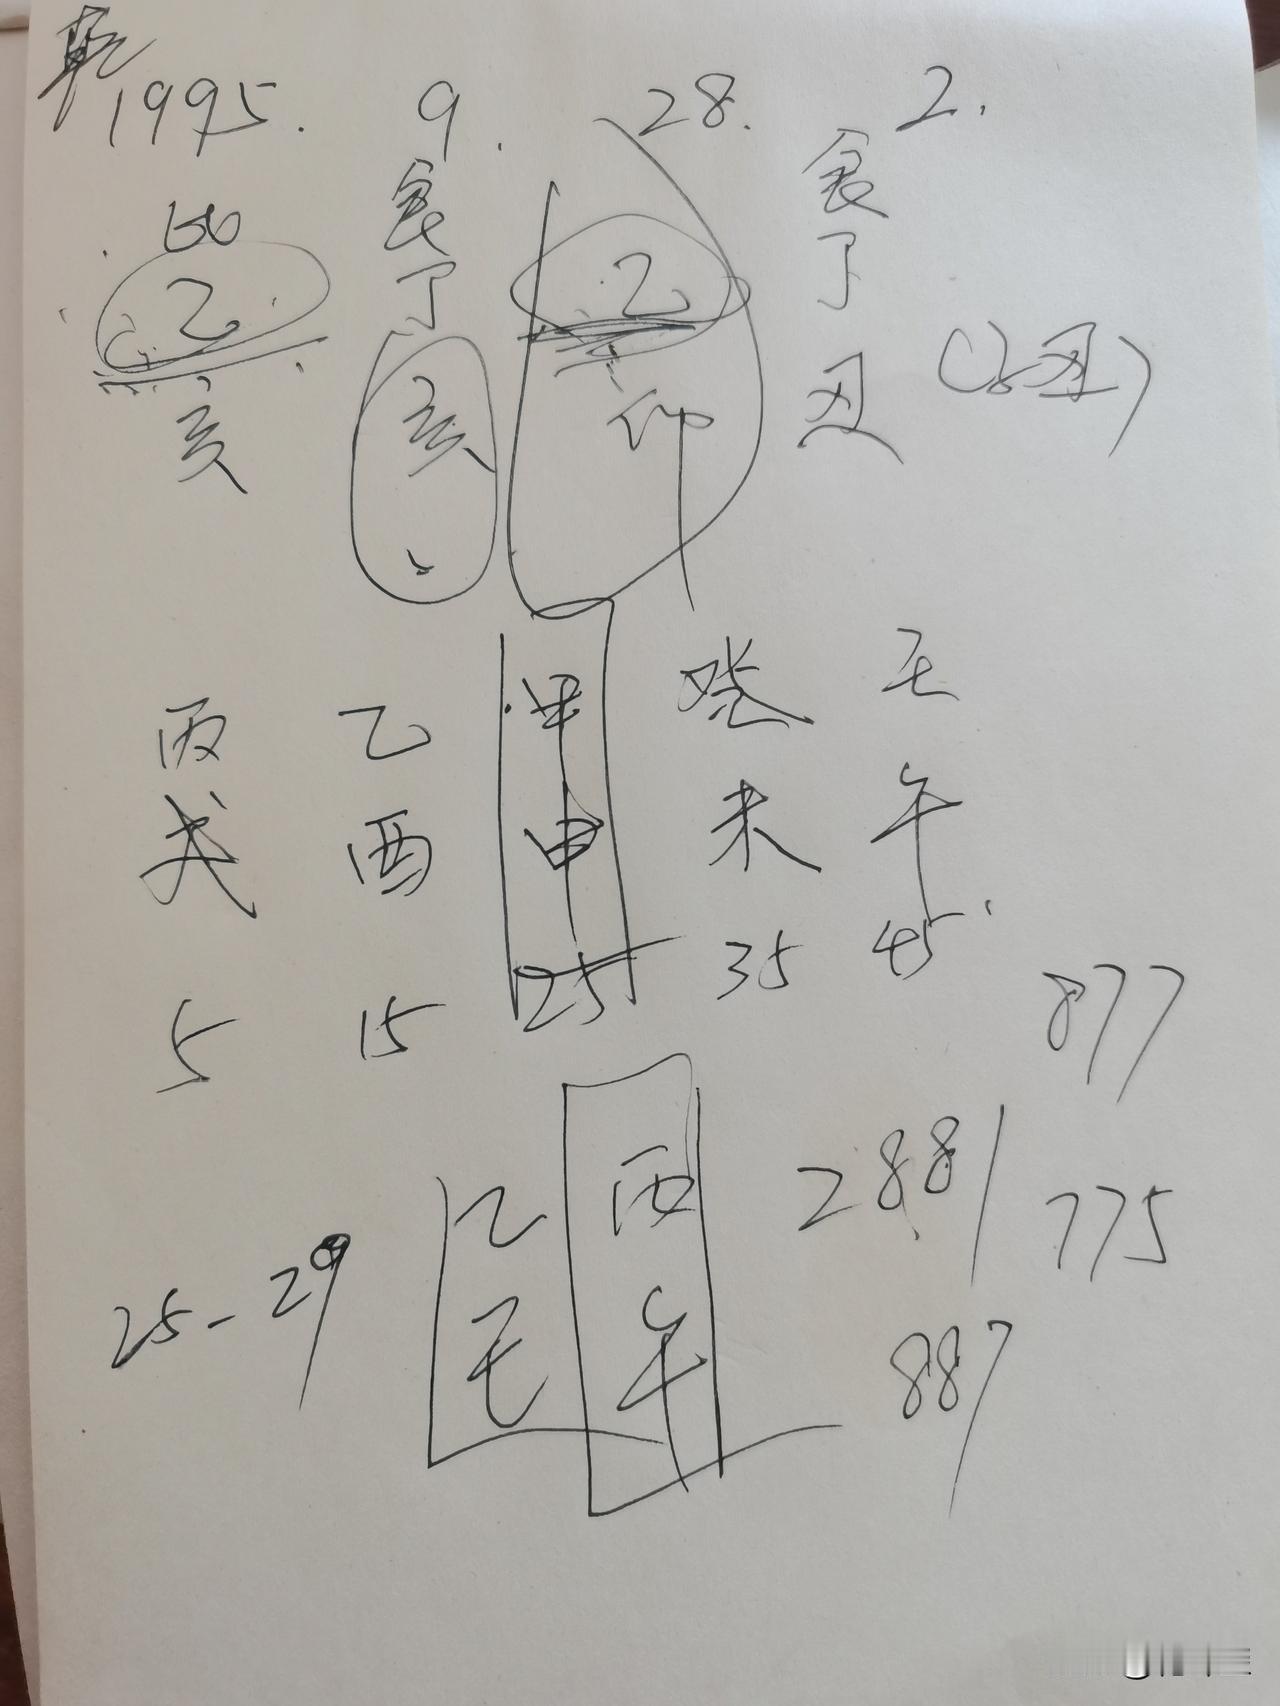 乾
1995. 9. 28. 2.
比 食 食
乙 丁 乙 丁
亥 亥 卯 丑 (子丑)
丙 乙 甲 癸 壬
戌 酉 申 未 午
5 15 25 35 45
877
乙 丙 288 775
25-29
午 887